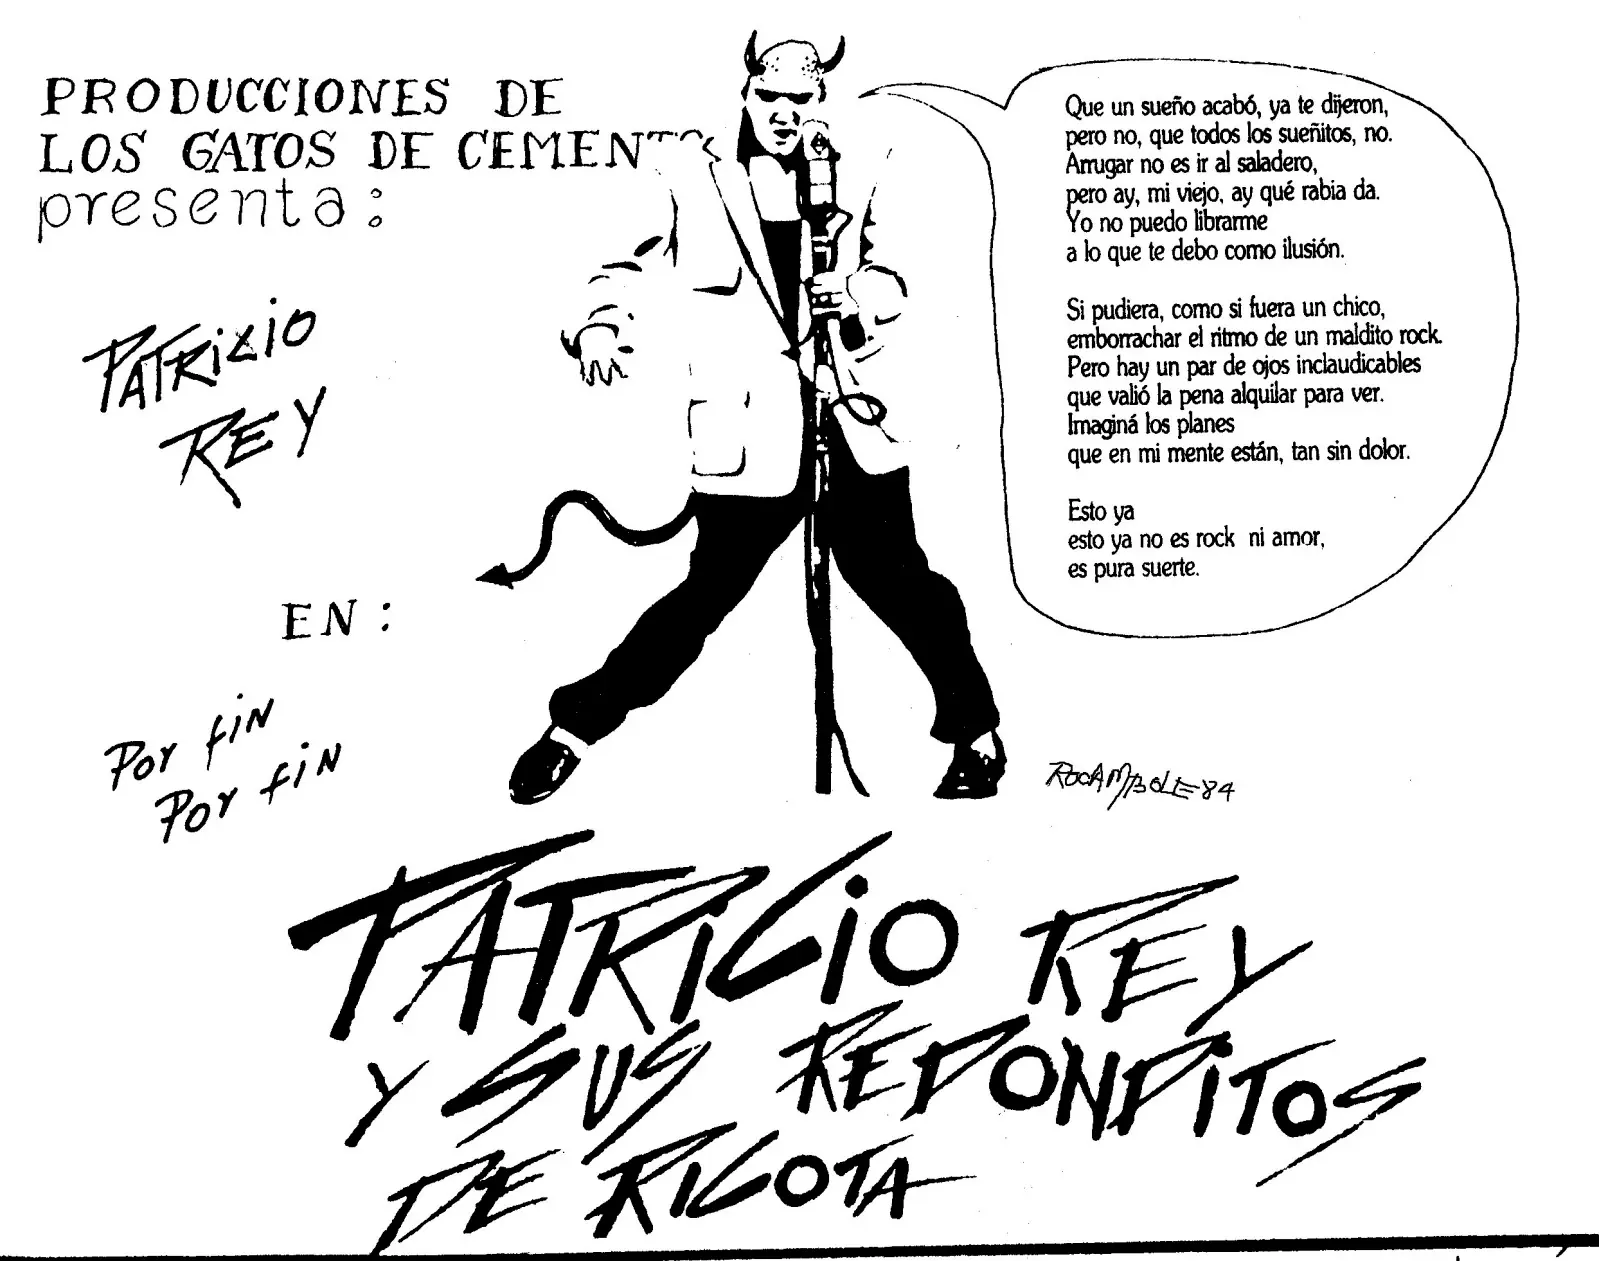 PRODUCCIONES DE
LOS GATOS DE CEMENTO
presenta:
PATRICIO
REY
EN:
POR FIN
POR FIN
Que un sueño acabó, ya te dijeron,
pero no, que todos los sueñitos, no.
Arrugar no es ir al saladero,
pero ay, mi viejo, ay qué rabia da.
Yo no puedo librarme
a lo que te debo como ilusión.
Si pudiera, como si fuera un chico,
emborrachar el ritmo de un maldito rock.
Pero hay un par de ojos inclaudicables
que valió la pena alquilar para ver.
Imaginá los planes
que en mi mente están, tan sin dolor.
Esto ya
esto ya no es rock ni amor,
es pura suerte.
ROCAMBOLE '84
PATRICIO REY
Y SUS REDONDITOS
DE RICOTA